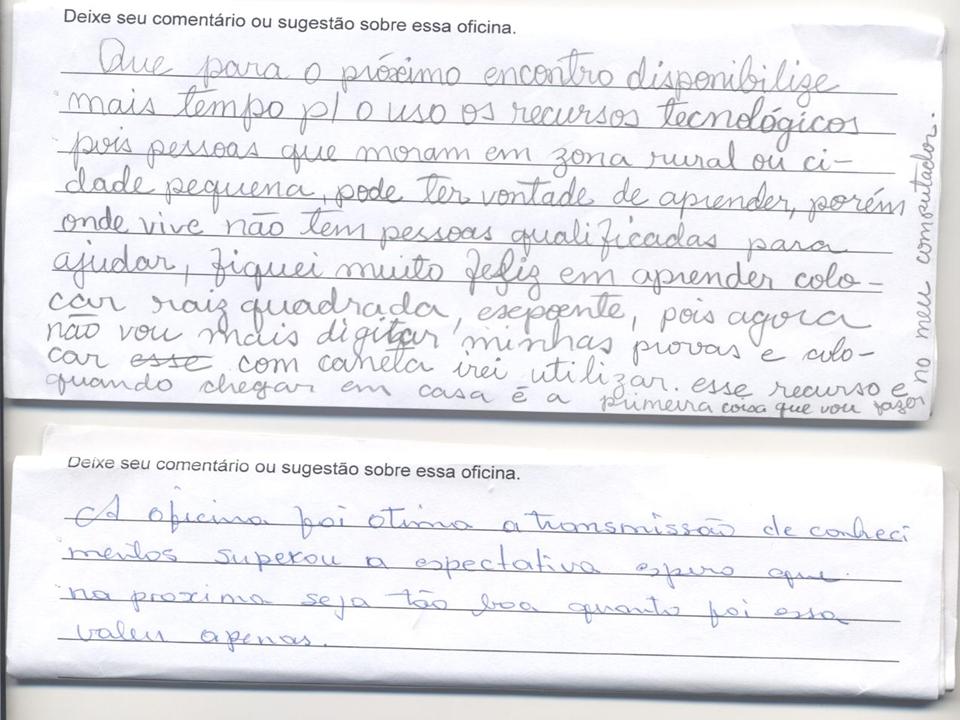 Deixe seu comentário ou sugestão sobre essa oficina.
Que para o próximo encontro disponibilize
mais tempo p/ o uso os recursos tecnológicos
pois pessoas que moram em zona rural ou ci-
dade pequena, pode ter vontade de aprender, porém
onde vive não tem pessoas qualificadas para
ajudar, fiquei muito feliz em aprender colo-
car raiz quadrada, expoente, pois agora
não vou mais digitar minhas provas e colo-
car esse com caneta irei utilizar. esse recurso e
quando chegar em casa é a primeira coisa que vou fazer
no meu computador.
Deixe seu comentário ou sugestão sobre essa oficina.
A oficina foi otima a transmissão de conheci
mentos superou a espectativa espero que
na proxima seja tão boa quanto foi essa
valeu apenas.